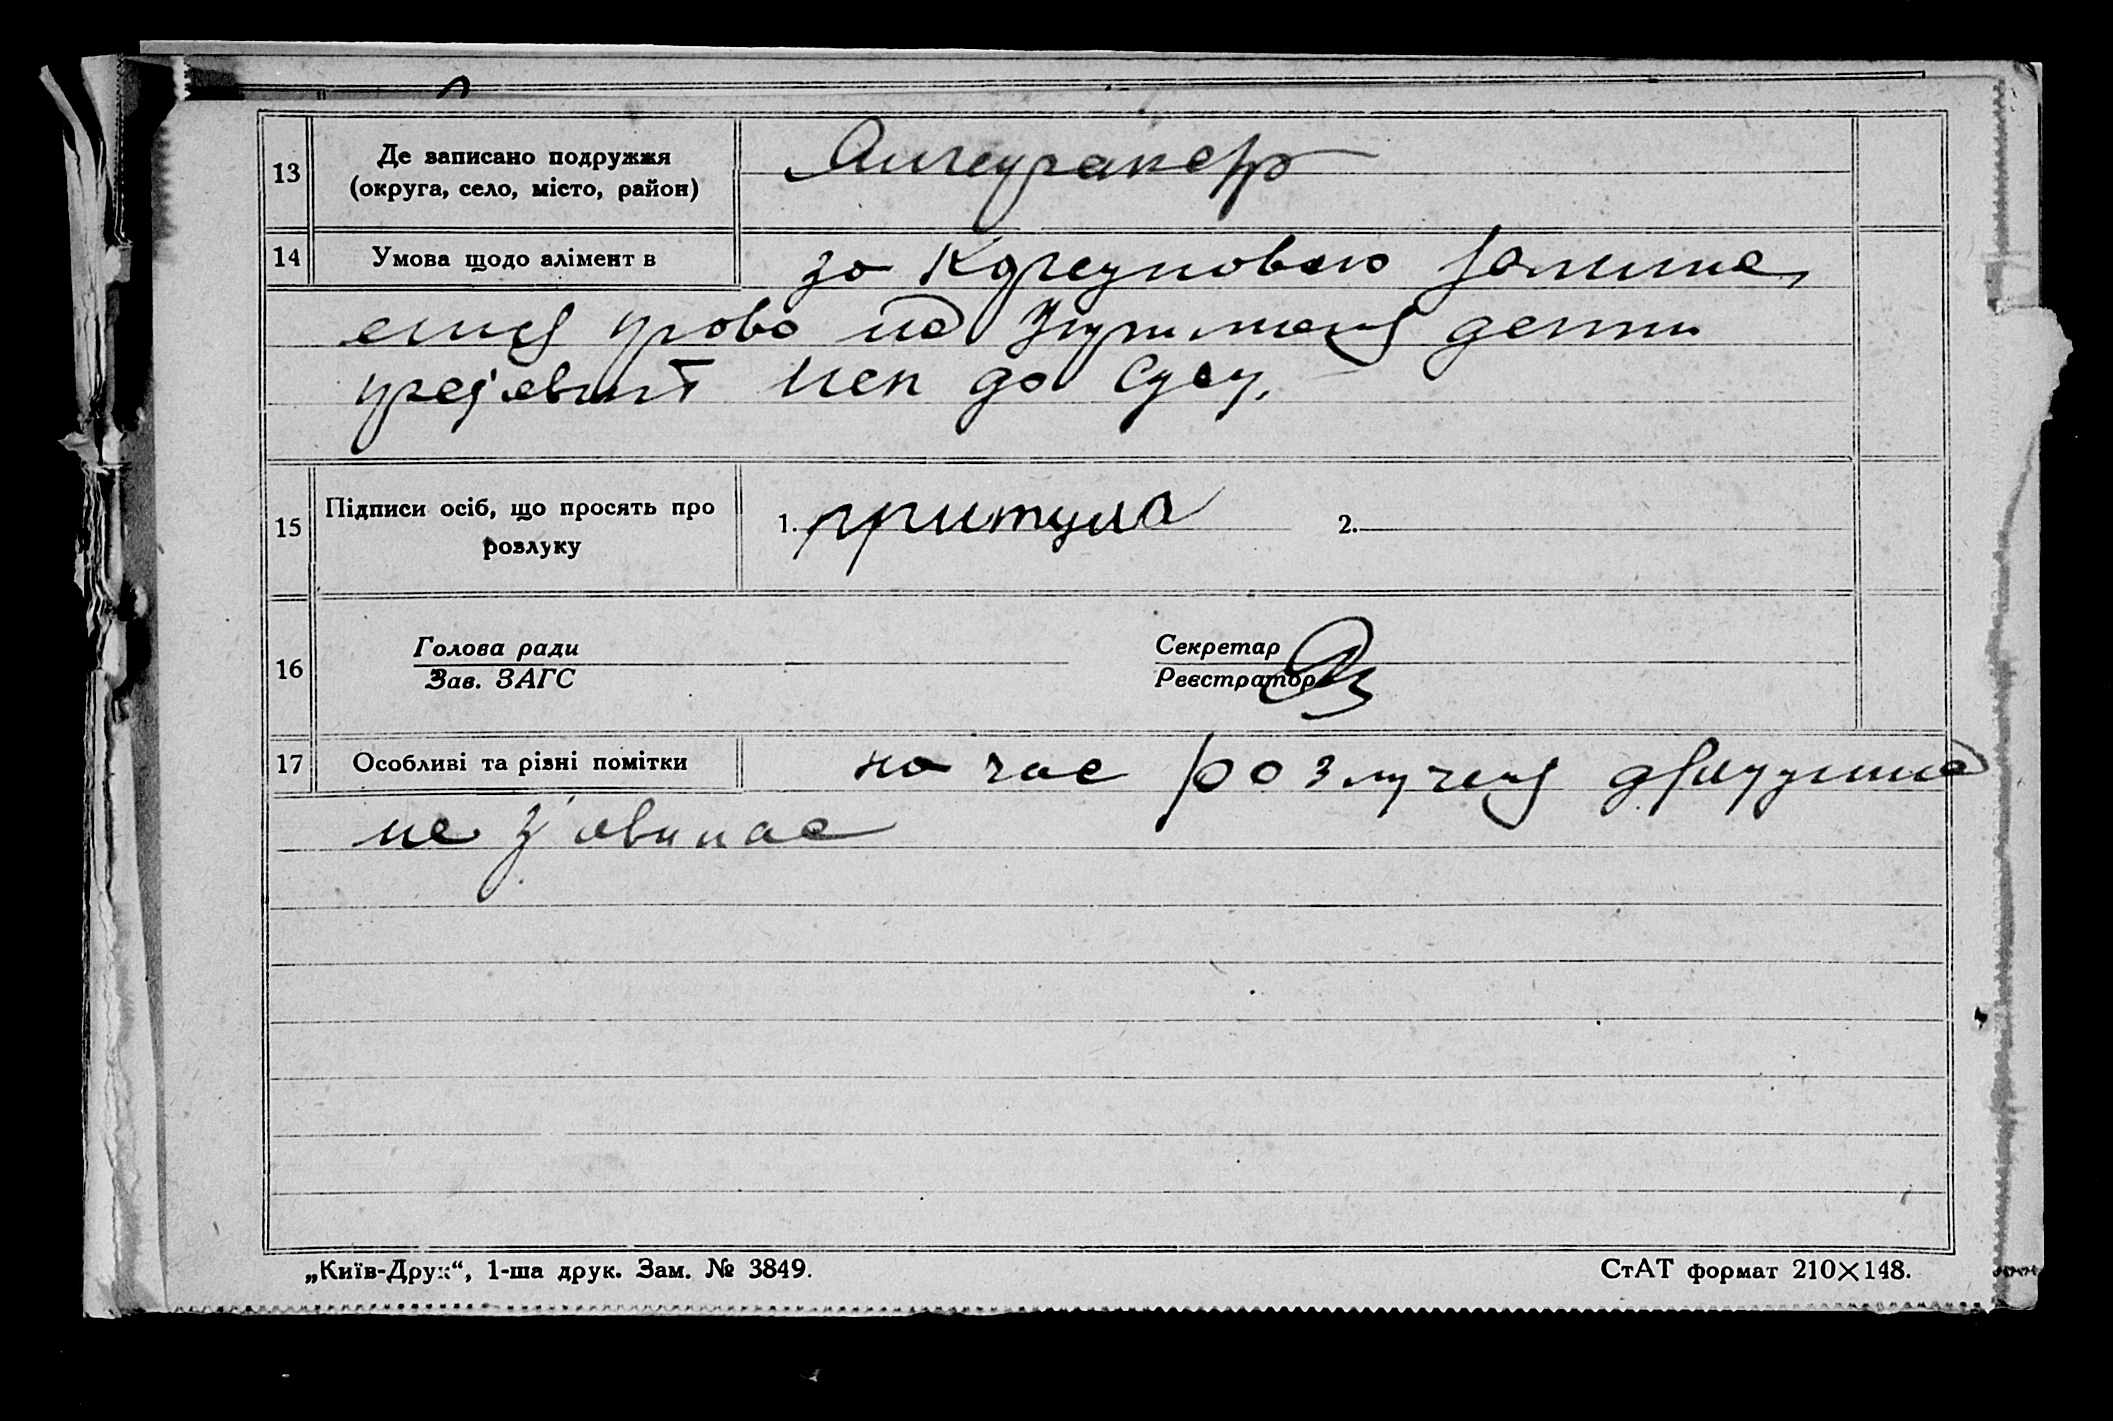 13
Де записано подружжя
(округа, село, місто, район)
14
Умова щодо алімент в
за Коржуновою залиша
ється право на утримання дитини
пред'явить иск до суду.
15
Підписи осіб, що просять про
розлуку
1. Притула
2.
16
Голова ради
Зав. ЗАГС
Секретар
Реєстратор
17
Особливі та різні помітки
на час розлучення дружина
не з'явилась
„Київ-Друк“, 1-ша друк. Зам. № 3849.
СтАТ формат 210×148.